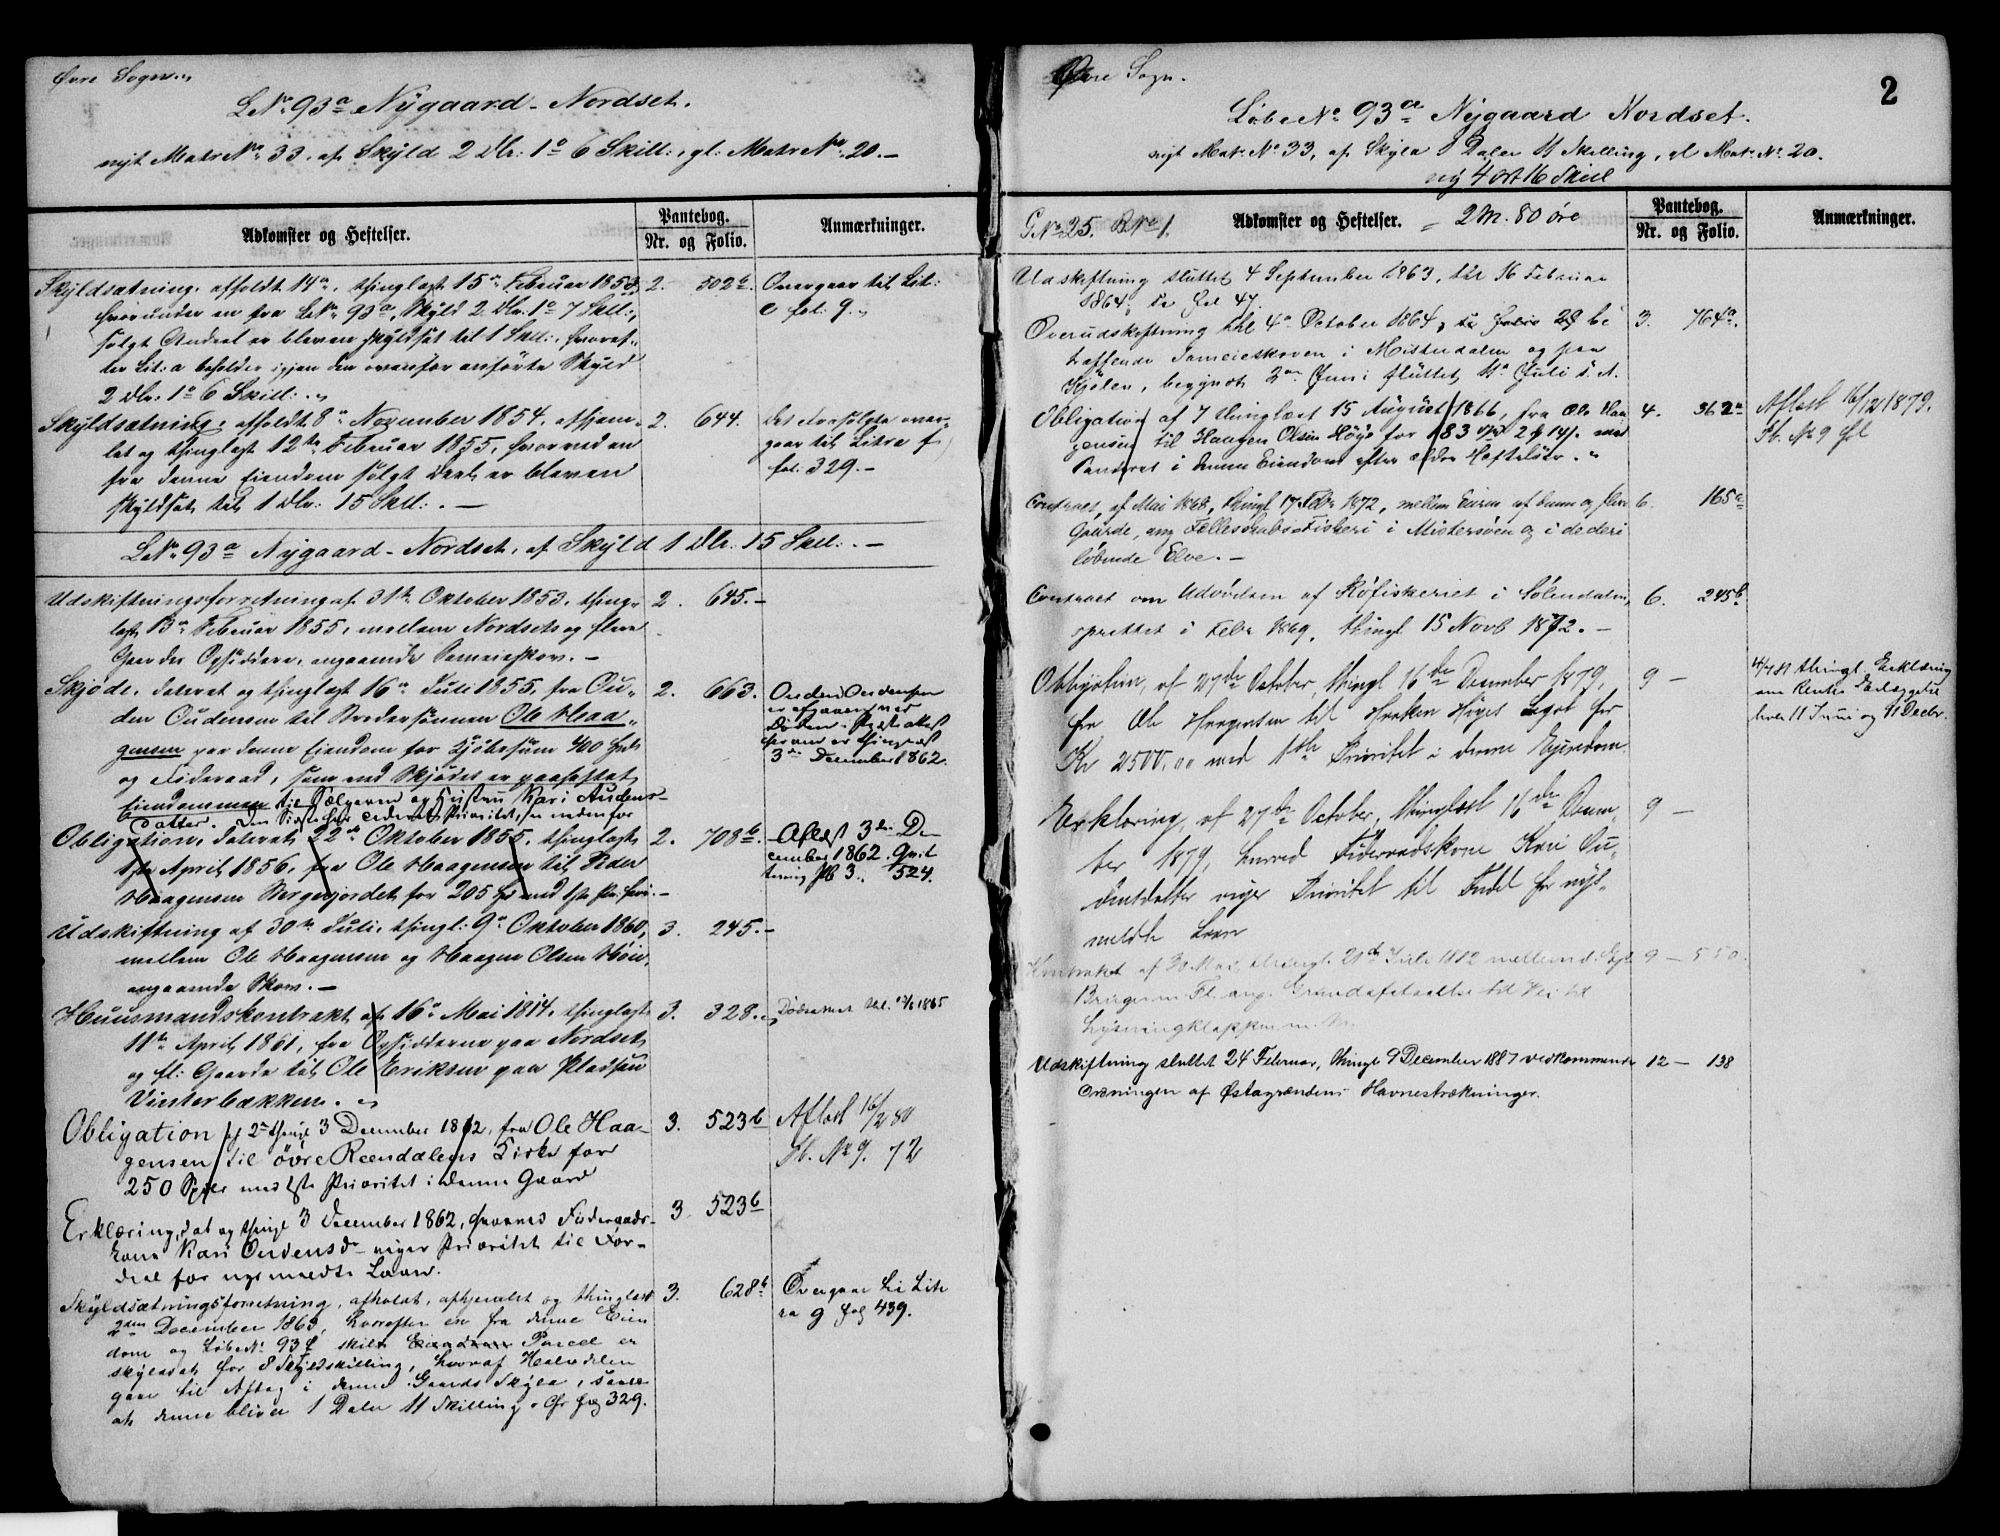 Øvre Sogn.
L№ 93a Nygaard - Nordset.
nyt Matr№ 33, af Skyld 2 Dlr: 1o 6 Skill:, gl: Matr№ 20. -
Adkomster og Heftelser.
Pantebog.
Nr. og Folio.
Anmærkninger.
Skyldsætning, afholdt 14de, thinglæst 15de Februar 1853, 2. 502b
hvorunder en fra L№ 93a, Skyld 2 Dlr. 1o 7 Skll:,
solgt Andeel er bleven skyldsat til 1 Skll:, hvoref-
ter Lit: a beholder igjen den ovenfor anførte Skyld
2 Dlr: 1o 6 Skill:.
Overgaar til Lit:
e fol: 9.
Skyldsætning, afholdt 8de November 1854, afhjem- 2. 644.
let og thinglæst 12te Februar 1855, hvorved en
fra denne Eiendom solgt Deel er bleven
skyldsat til 1 Dlr: 15 Skll:. -
Det Forsolgte over-
gaar til Litra f
fol: 329. -
L№ 93a Nygaard - Nordset, af Skyld 1 Dlr: 15 Skll:. -
Udskiftningsforretning af 31te Oktober 1853, thing- 2. 645. -
læst 13de Februar 1855, mellem Nordsets og flere
Gaardes Opsiddere, angaaende Sameieskov. -
Skjøde, dateret og thinglæst 16de Juli 1855, fra Ou- 2. 663.
den Oudensen til Brodersønnen Ole Haa-
gensen paa denne Eiendom for Kjøbesum 400 Spd.
og Føderaad, som ved Skjødet er paaheftet
Eiendommen til Sælgeren og Hustru Kari Audens-
datter. Den Sidste har cederet Prioritet, se nedenfor
Ouden Oudensen
er afgaaen ved
Døden. Skiftattest
herom er thinglæst
3de December 1862.
Obligation, dateret 22de Oktober 1855, thinglæst 2. 708b
April 1856, fra Ole Haagensen til Peder
Haagensen Bergesjordet for 205 Spd med 1ste Prioritet. -
Aflæst 3de De
cember 1862. Qvit
tering Pb 3. 524.
Udskiftning af 30te Juli, thingl: 9de Oktober 1860, 3. 245. -
mellem Ole Haagensen og Haagen Olsen Høie,
angaaende Skov. -
Huusmandskontrakt af 16de Mai 1814, thinglæst 3. 328.
11te April 1861, fra Opsidderne paa Nordset
og fl: Gaarde til Ole Eriksen paa Pladsen
Vinterbækken.
Obligation af 2de thingl 3 December 1862, fra Ole Haa- 3. 523b
gensen til øvre Reendalens Kirke for
250 Spdlr med 1ste Prioritet i denne Gaard
Aflæst 16/2 80
Pb. № 9. 72
Erklæring, dat og thingl 3 December 1862, hvorved Føderaads- 3. 523b
kone Kari Oudensdr viger Prioritet til For-
deel for nysmeldte Laan.
Skyldsætningsforretning, afholdt, afhjemlet og thinglæst 3. 628b
2den December 1863, hvorefter en fra denne Eien
dom og Løbe№ 93f skilt Parcel er
skyldsat for 8 Skyldskilling, hvoraf Halvdelen
gaar til Aftag i denne Gaards Skyld, saale
at denne bliver 1 Daler 11 Skilling. Cfr fol 329.
Overgaar til Lit
ra g fol 439.
Øvre Sogn.
2
Løbe№ 93a Nygaard Nordset.
nyt Mat. № 33, af Skyld 1 Daler 11 Skilling, gl Mat. № 20.
ny 4 ort 16 Skill
G№ 25. B№ 1.
Adkomster og Heftelser.
= 2 M. 80 øre
Pantebog.
Nr. og Folio.
Anmærkninger.
Udskiftning sluttet 4 September 1863, thl 16 Februar
1864, se fol 47.
Overudskiftning thl 4de October 1864, se folio 29 be 3. 764a.
træffende Sameieskoven i Misterdalen og paa
Kjølen, begyndt 2den Juni sluttet 11te Juli s. A.
Obligation af 7 thinglæst 15 August 1866, fra Ole Haa 4. 362a
gensen til Haagen Olsen Høye for 183 Spd 2 ort 14 s. med
Panderet i denne Eiendom efter ældre Heftelser.
Aflæst 16/12 1879.
Pb. № 9 fol
Contract, af Mai 1868, thingl 17 Febr 1872, mellem Eierne af denne og flere 6. 165a
Gaarde, ang Fællesskabs Fiskeri i Mistersøen og i de deri
løbende Elve. -
Contract om Udøvelsen af Røfiskeriet i Sølendalen, 6. 245b
oprettet i Febr 1869, thingl 15 Novb 1872. -
Obligation, af 27de October, thingl 16de December 1879, 9 -
fra Ole Haagensen til Haaken Høyes Legat for
Kr 2500,00 med 1ste Prioritet i denne Eiendom.
4/7 81 thingl. Erklæring
om Rentes Erlæggelse
hver 11 Juni og 11 Decbr.
Erklæring, af 27de October, thinglæst 16de Decem- 9 -
ber 1879, hvorved Føderaadskone Kari Ou-
densdatter viger Prioritet til Fordel for nys-
meldte Laan
Kontrakt af 30 Mai, thingl. 21de Juli 1882 9 - 550.
Udskiftning sluttet 24 Februar, thingl 9 December 1887 vedkommende 12 - 138
Ordningen af Østagrændens Havnestrækninger.